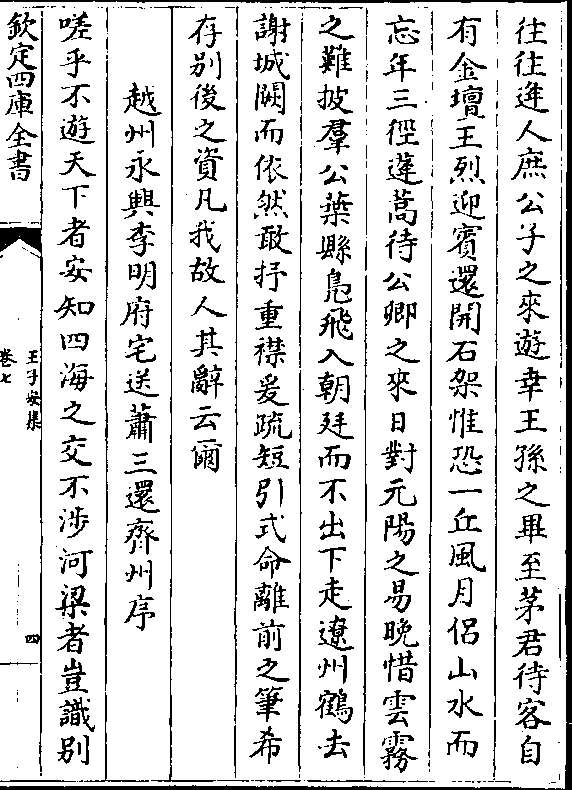 往往逢人庶公子之來遊幸王孫之畢至茅君待客自
有金壇王烈迎賓還開石架惟恐一丘風月侶山水而
忘年三徑蓬蒿待公卿之來日對元陽之易晚惜雲霧
之難披羣公葉縣鳬飛入朝廷而不出下走遼州鶴去
謝城闕而依然敢抒重襟爰疏短引式命離前之筆希
存别後之資凡我故人其辭云爾
越州永興李明府宅送蕭三還齊州序
嗟乎不遊天下者安知四海之交不涉河梁者豈識别
欽定四庫全書
王子安集
卷七
四